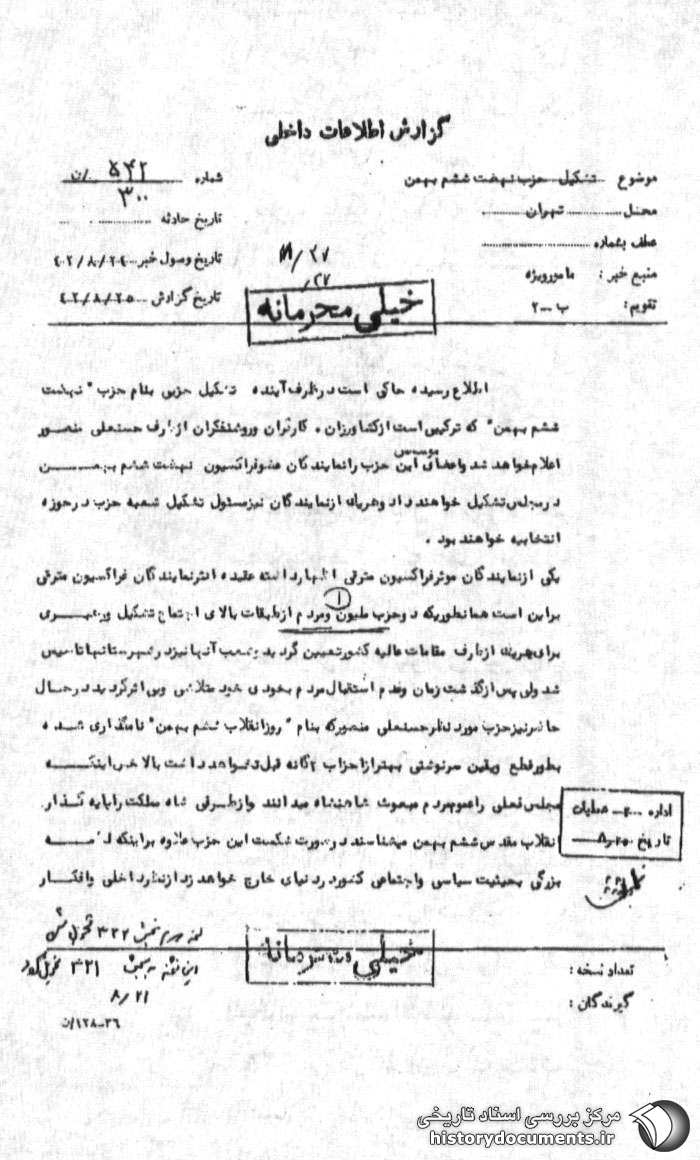 گزارش اطلاعات داخلی
موضوع تشکیل حزب نهضت ششم بهمن
شماره ۵۴۲ /ن
۳۰۰
محل تهران
تاریخ حادثه
عطف بشماره
تاریخ وصول خبر ۴۰۲/۸/۲۴
منبع خبر : مامور ویژه
تاریخ گزارش ۴۰۲/۸/۲۵
تقویم : ب ـ ۲
خیلی محرمانه
اطلاع رسیده حاکی است در ظرف آینده تشکیل حزبی بنام حزب " نهضت
ششم بهمن " که ترکیبی است از کشاورزان ، کارگران و روشنفکران از طرف حسنعلی منصور
اعلام خواهد شد و اعضای موسس این حزب را نمایندگان عضو فراکسیون نهضت ششم بهمن
در مجلس تشکیل خواهند داد و هر یک از نمایندگان نیز مسئول تشکیل شعبه حزب در حوزه
انتخابیه خواهند بود .
یکی از نمایندگان موثر فراکسیون مترقی اظهار داشته عقیده اکثر نمایندگان فراکسیون مترقی
بر این است همانطوریکه دو حزب ملیون و مردم ۱ از طبقات بالای اجتماع تشکیل و رهبری
برای هر یک از طرف مقامات عالیه کشور تعیین گردید و شعب آنها نیز در شهرستانها تاسیس
شد ولی پس از گذشت زمان و عدم استقبال مردم بخودی خود متلاشی و بی اثر گردید در حال
حاضر نیز حزب مورد نظر حسنعلی منصور که بنام " روز انقلاب ششم بهمن " نامگذاری شده
بطور قطع و یقین سرنوشتی بهتر از احزاب ۲ گانه قبل نخواهد داشت بالاخص اینکه
مجلس فعلی را عموم مردم مبعوث شاهنشاه میدانند و از طرفی شاه مملکت را پایه گذار
انقلاب مقدس ششم بهمن میشناسند در صورت شکست این حزب علاوه بر اینکه لطمه
بزرگی بحیثیت سیاسی و اجتماعی کشور در دنیای خارج خواهد زد از نظر داخلی و افکار
اداره ـ عملیات
تاریخ ۸٫۲۵
خیلی محرمانه
تعداد نسخه :
گیرندگان :
۸/۲۱
۱۲۸-۳۶/ن
مرکز بررسی اسناد تاریخی
historydocuments.ir